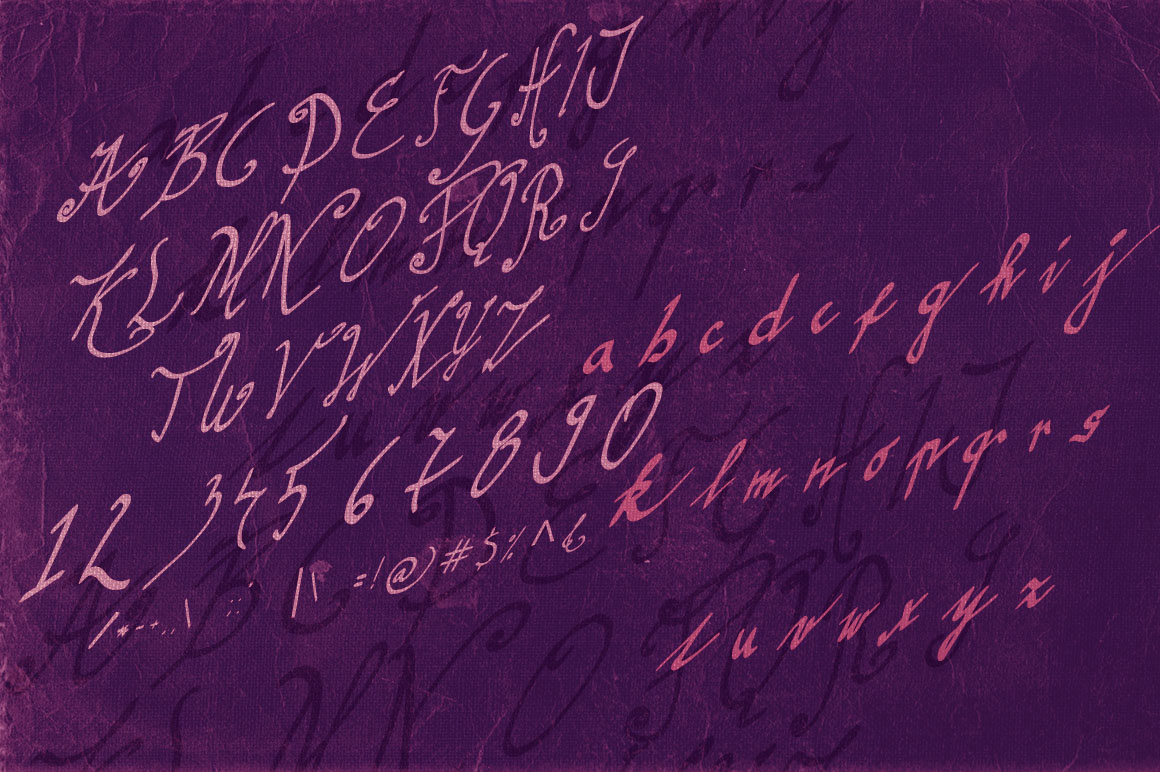 A B C D E F G H I J
K L M N O P Q R S
T U V W X Y Z
1 2 3 4 5 6 7 8 9 0
/ * - + , . \ : ; | \ = ! @ ) # $ % ^ &
a b c d e f g h i j
k l m n o p q r s
t u v w x y z